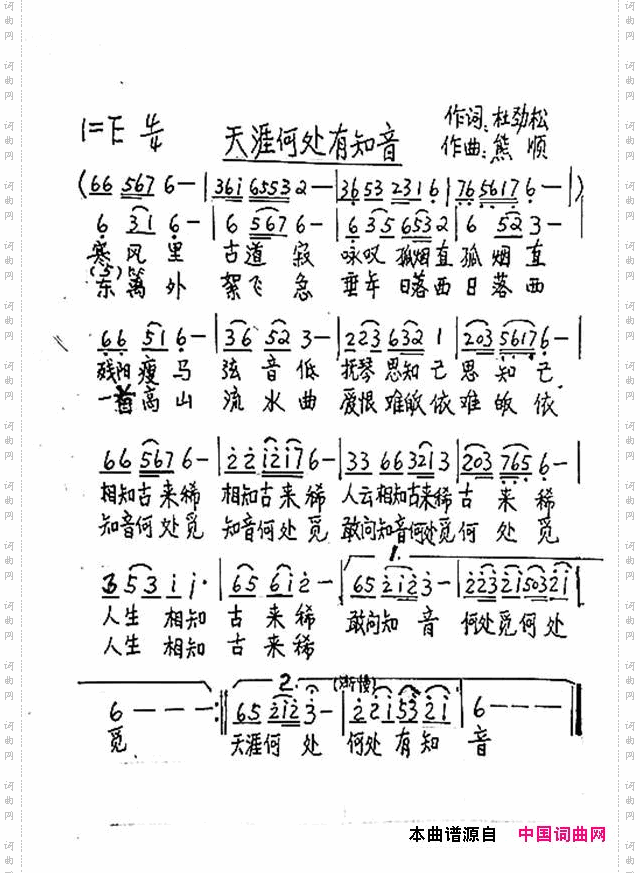 1=E 4/4
天涯何处有知音
作词:杜劲松
作曲:熊顺
(66 567 6— | 36i 6553 2— | 36 53 231 6 | 76 5617 6— | )
6 3i 6— | 6 567 6— | 6 35 653 2 | 6 52 3— |
寒风里 古道寂 咏叹孤烟直孤烟直
东篱外 絮飞急 垂年日落西日落西
66 51 6— | 36 52 3— | 223 632 1 | 203 5617 6— |
残阳瘦马 弦音低 抚琴思知己思知己
一首高山 流水曲 爱恨难皈依难皈依
66 567 6— | 22 i2i7 6— | 33 66 321 3 | 203 765 6— |
相知古来稀 相知古来稀 人云相知古来稀古来稀
知音何处觅 知音何处觅 敢问知音何处觅何处觅
1.
3 53 i i· | 65 6i 2— | 65 2i2 3— | 223 2i 503 2i |
人生相知 古来稀 敢问知音 何处觅何处
人生相知 古来稀
2. (渐慢)
6——— :‖ 65 2i2 3— | 22i 53 2i | 6——— ‖
觅 天涯何处 何处有知音
本曲谱源自 中国词曲网
词曲网